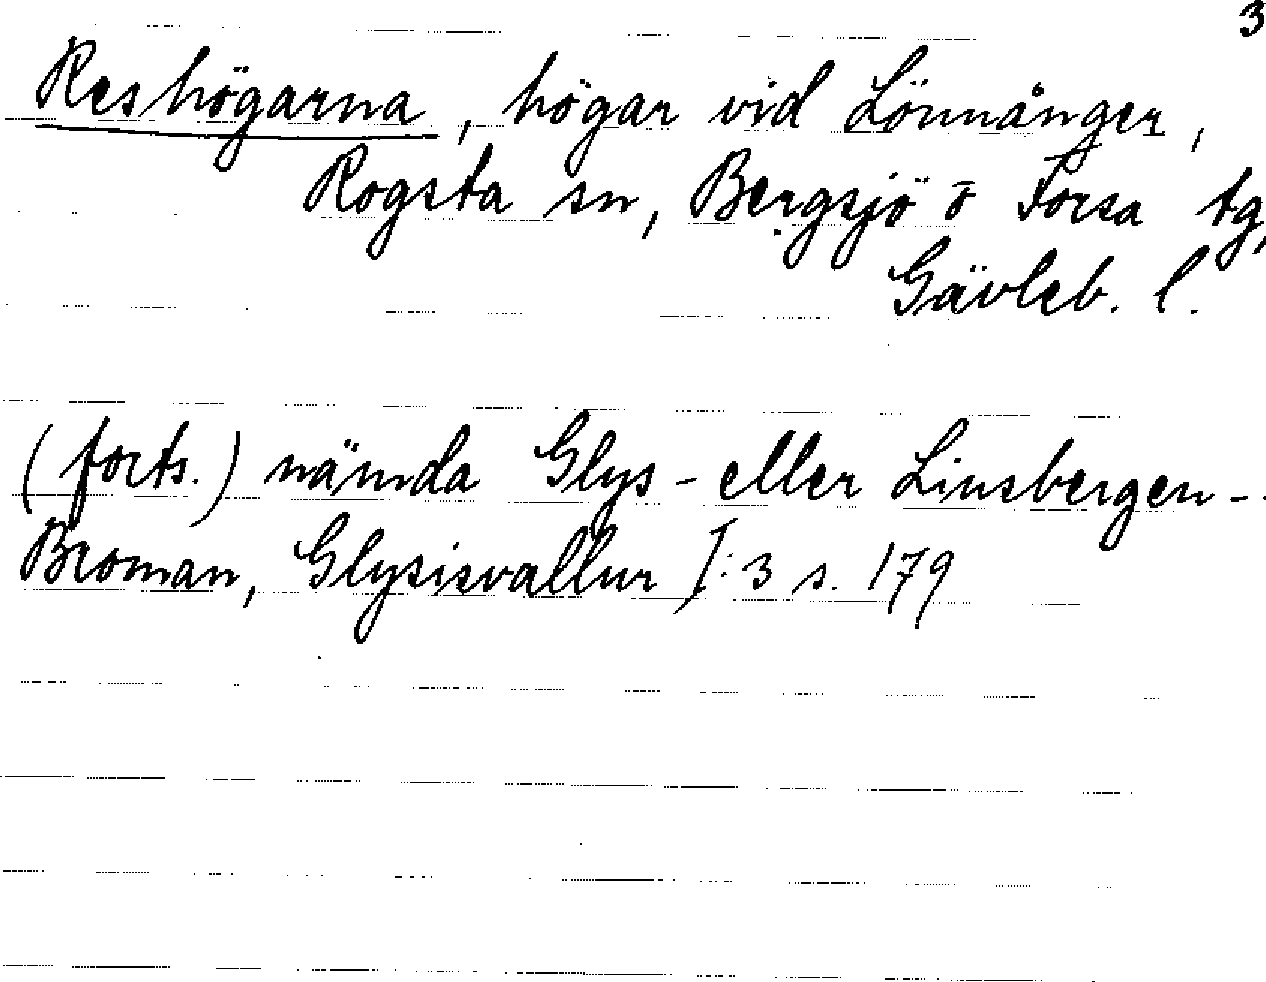 3
Reshögarna, högar vid Lönnånger,
Rogsta sn, Bergsjö o Forsa tg,
Gävleb. l.
(forts.) nämda Glys- eller Linsbergen -.
Broman, Glysisvallur I:3 s. 179